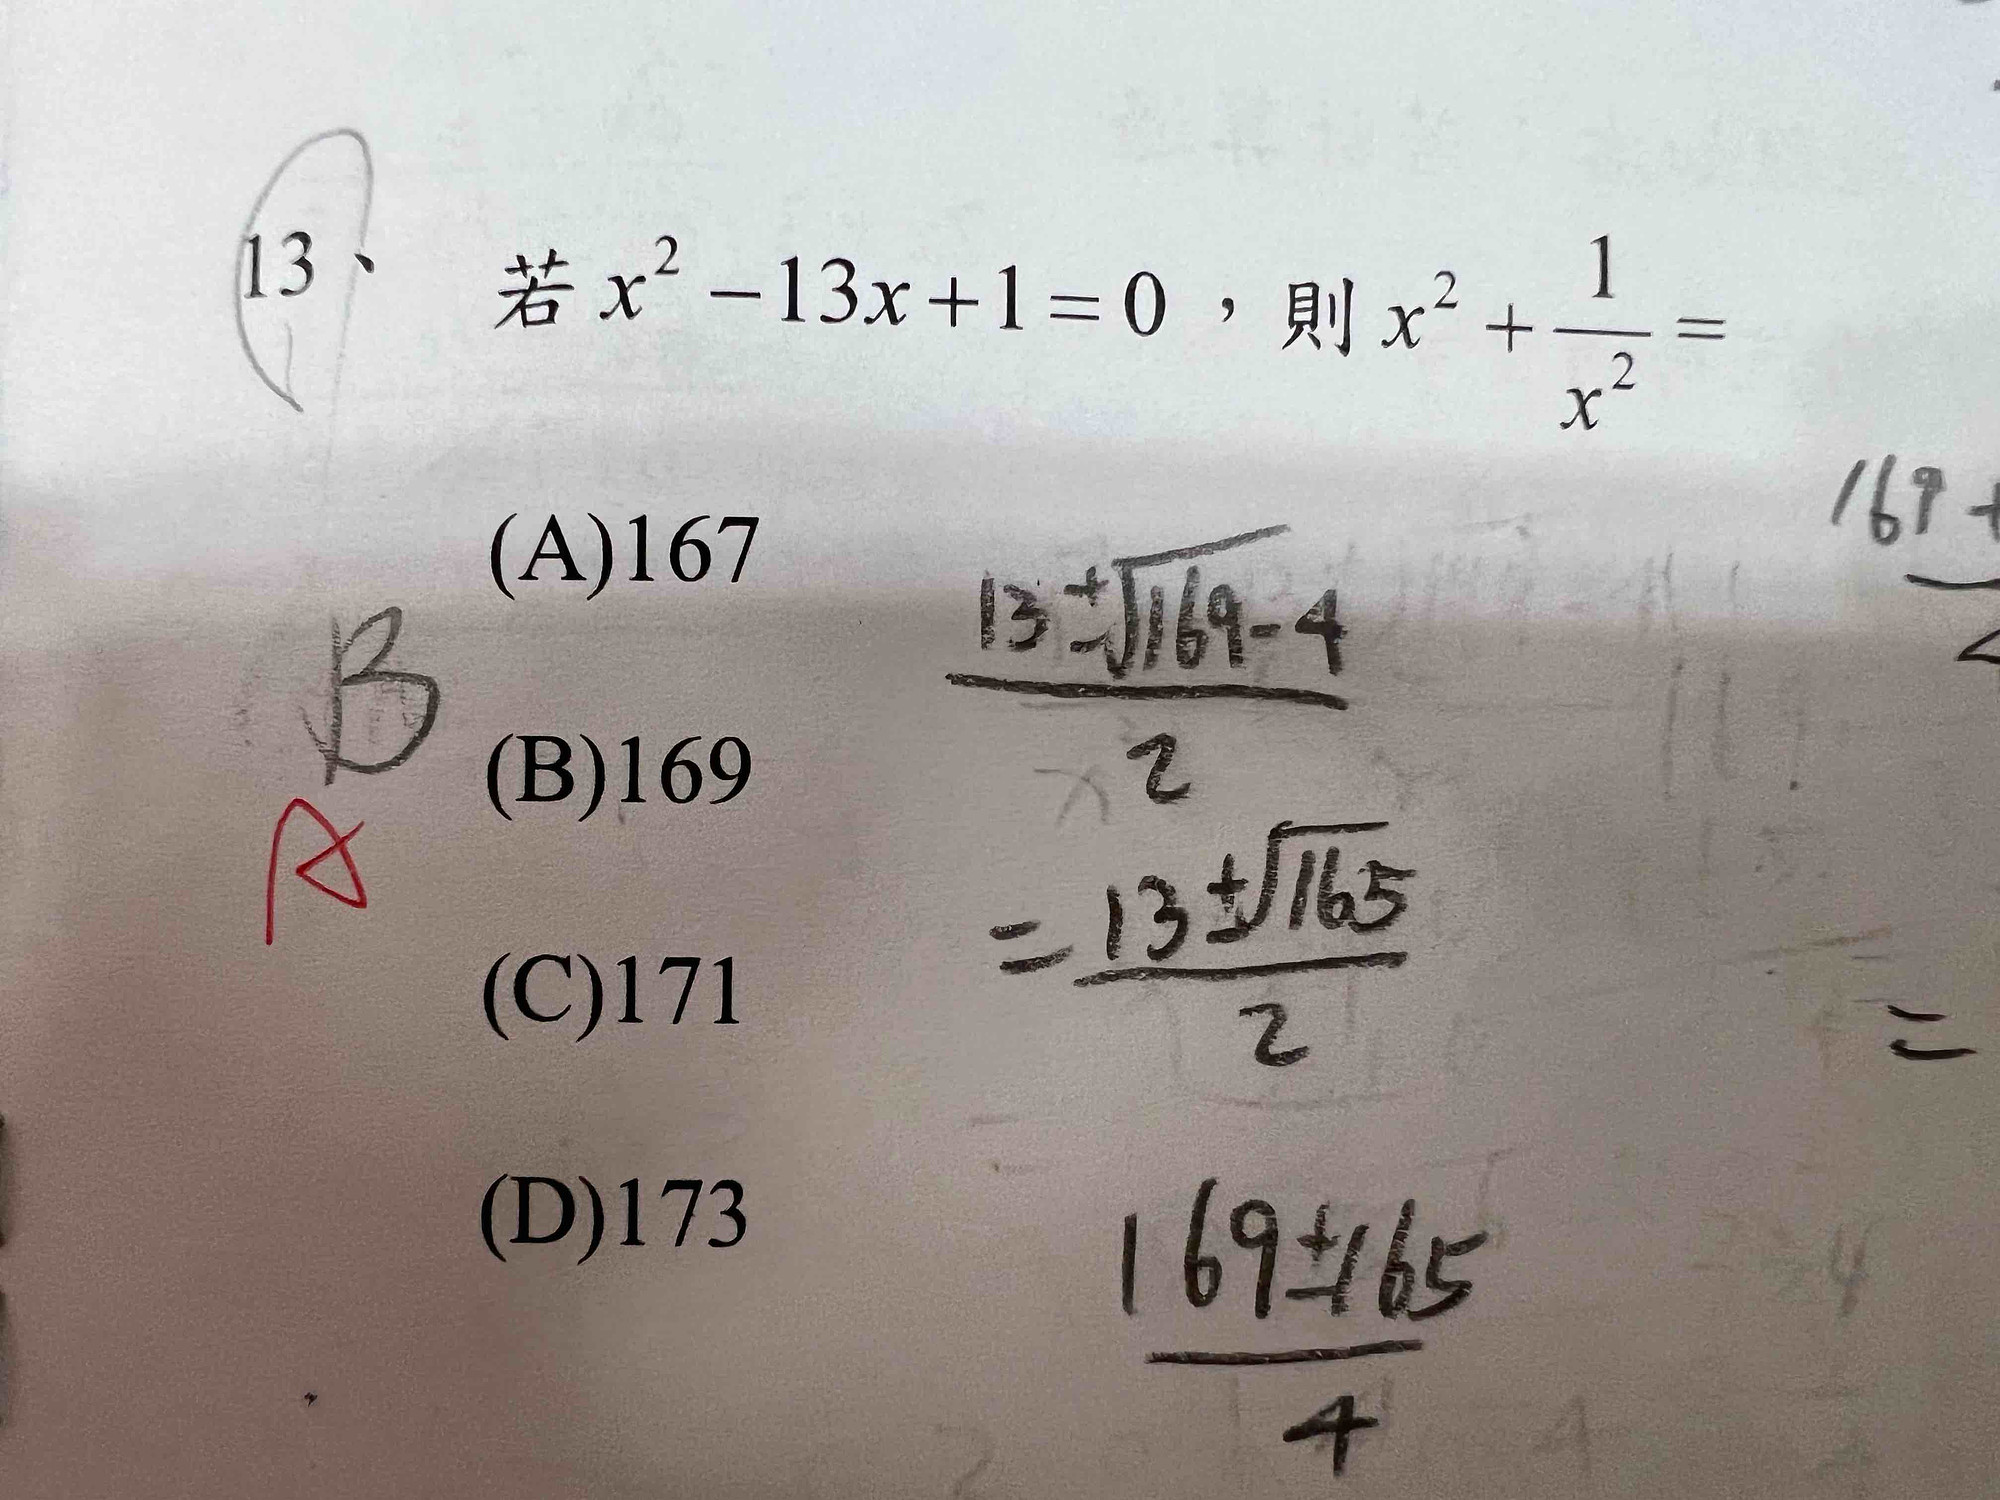 13、 若 x² − 13x + 1 = 0，則 x² + 1/x² =
(A)167
(B)169
(C)171
(D)173
B
A
(13 ± √(169 - 4))/2
= (13 ± √165)/2
(169 ± 165)/4
169 +
=